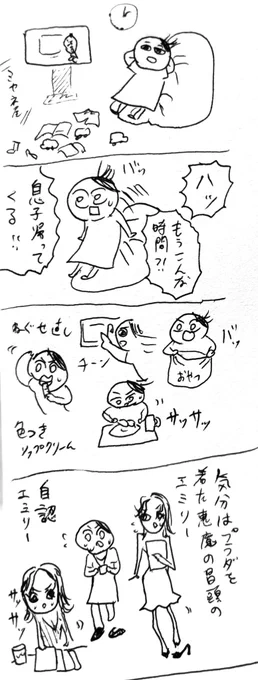 ミヤネ屋
♪
ハッ
もうこんな
時間?!
バッ
息子帰って
くる!!
バッ
おやつ
チーン
ねぐせ直し
サッサッ
色つき
リップクリーム
気分はプラダを
着た悪魔の冒頭の
エミリー
自認
エミリー
サッサッ